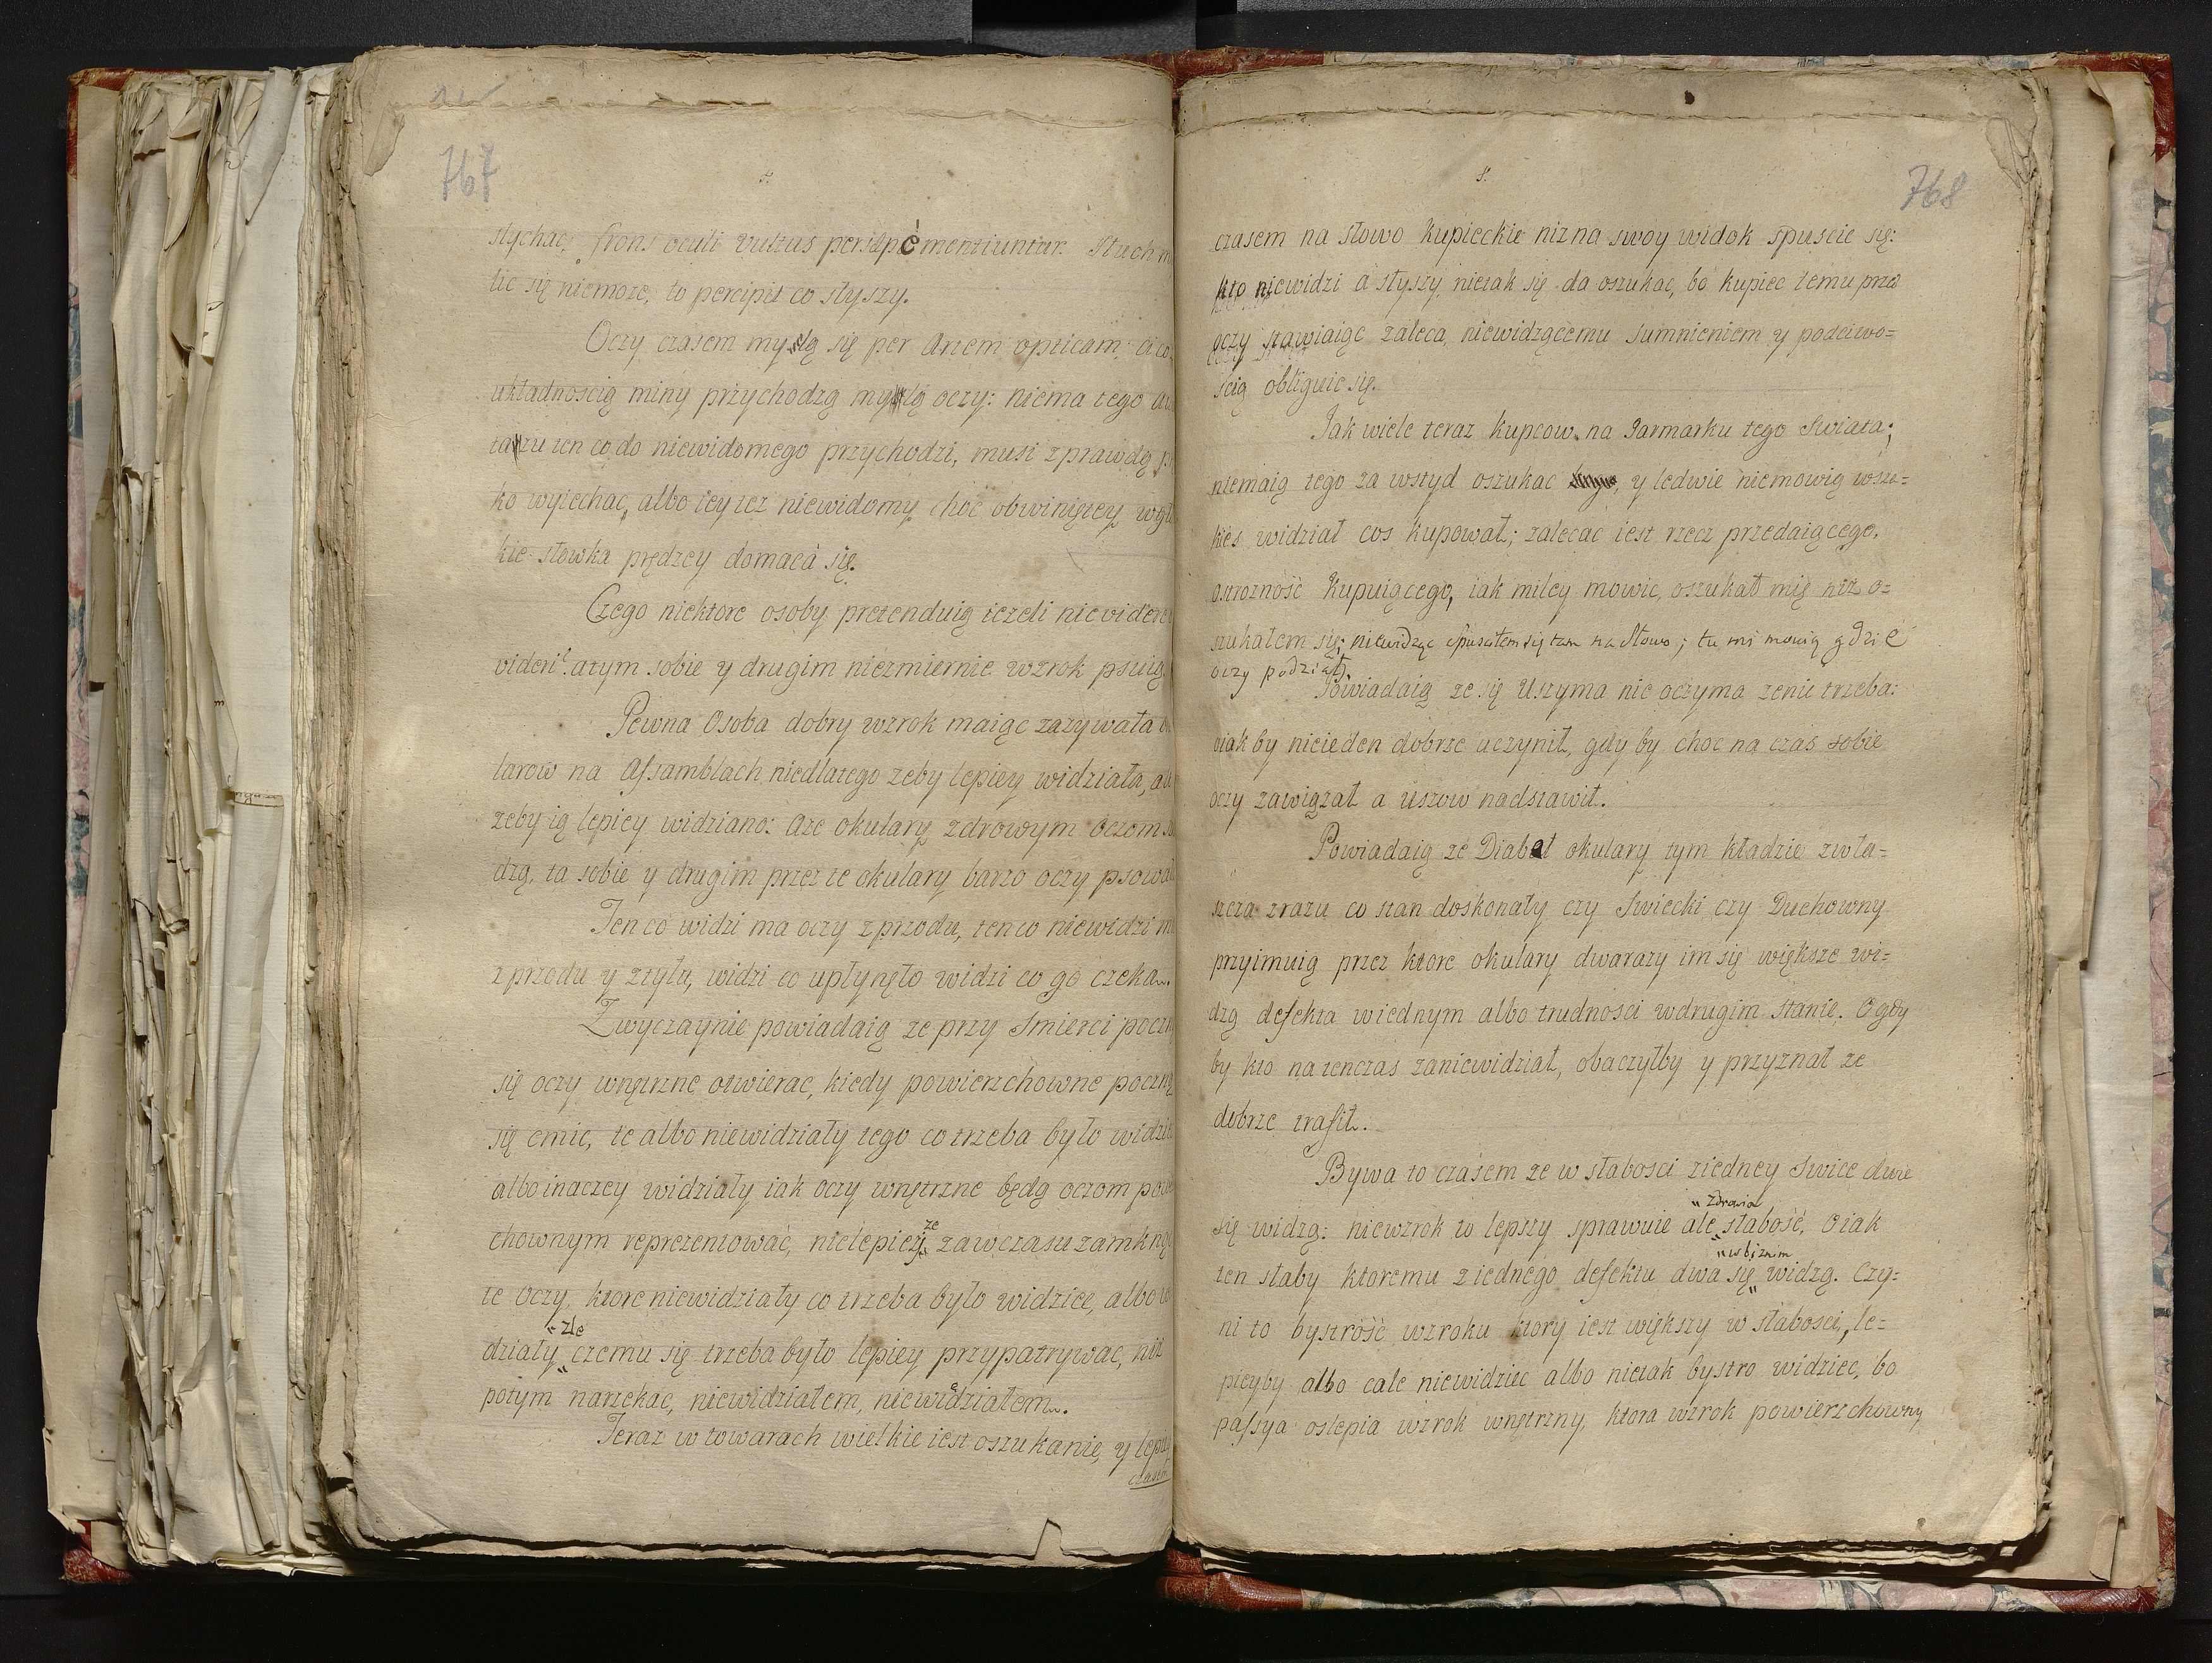 767
słychac, frons oculi vultus persæpè mentiuntur. Słuch
lic się niemoze, to percipit co słyszy.
Oczy czasem mylą się per Artem opticam, a co
układnoscią miny przychodzą mylą oczy: niema tego
ten co do niewidomego przychodzi, musi z prawdą
ko wyiechac, albo iey tez niewidomy choć obwinięzey
kie słowka prędzey domaca się.
Czego niektore osoby pretenduią iezeli nie
videri? atym sobie y drugim niezmiernie wzrok psuią
Pewna Osoba dobry wzrok maiąc zazywała
larow na Assamblach niedlatego zeby lepiey widziała,
zeby ią lepiey widziano: Aze okulary zdrowym Oczom
dzą, ta sobie y drugim przez te okulary barzo oczy
Ten co widzi ma oczy z przodu, ten co niewidzi
z przodu y ztyłu, widzi co upłynęło widzi co go czeka.
Zwyczaynie powiadaią ze przy Smierci
się oczy wnętrzne otwierac, kiedy powierzchowne
się cmic, te albo niewidziały tego co trzeba było
albo inaczey widziały iak oczy wnętrzne będą oczom
chownym reprezentować, nielepieyze zawczasu
te Oczy, ktore niewidziały co trzeba było widziec, albo
działy zle czemu się trzeba było lepiey przypatrywac, niz
potym narzekac, niewidziałem, niewidziałem.
Teraz w towarach wielkie iest oszukanie, y
czasem
768
czasem na słowo kupieckie niz na swoy widok spuscic się:
kto niewidzi a słyszy, nietak się da oszukac, bo kupiec temu
oczy stawiaiąc zaleca, niewidzącemu sumnieniem y podciwo=
scią obliguie się.
Jak wiele teraz kupcow na Jarmarku tego Swiata;
niemaią tego za wstyd oszukac, y ledwie niemowią wsza=
kies widział cos kupował; zalecac iest rzecz przedaiącego,
ostrozność Kupuiącego, iak miley mowic, oszukał mię niz o=
szukałem się; niewidząc spusciłem się tam na słowo; tu mi mowią gdzie
oczy podział.
Powiadaią ze się Uszyma nie oczyma zenic trzeba:
oiak by nieieden dobrze uczynił, gdy by choc na czas sobie
oczy zawiązał a uszow nadstawił.
Powiadaią ze Diabeł okulary tym kładzie zwła=
szcza zrazu co stan doskonały czy Swiecki czy Duchowny
przyimuią przez ktore okulary dwarazy im się większe wi=
dzą defekta wiednym albo trudnosci wdrugim stanie. O gdy
by kto natenczas zaniewidział, obaczyłby y przyznał ze
dobrze trafił.
Bywa to czasem ze w słabosci ziedney Swice dwie
się widzą: niewzrok to lepszy sprawuie ale zdrowia słabość. Oiak
ten słaby ktoremu z iednego defektu dwa się w bliznim widzą. Czy=
ni to bystrość wzroku ktory iest większy w słabosci, le=
pieyby albo cale niewidziec albo nietak bystro widziec, bo
passya oslepia wzrok wnętrzny, ktora wzrok powierzchowny